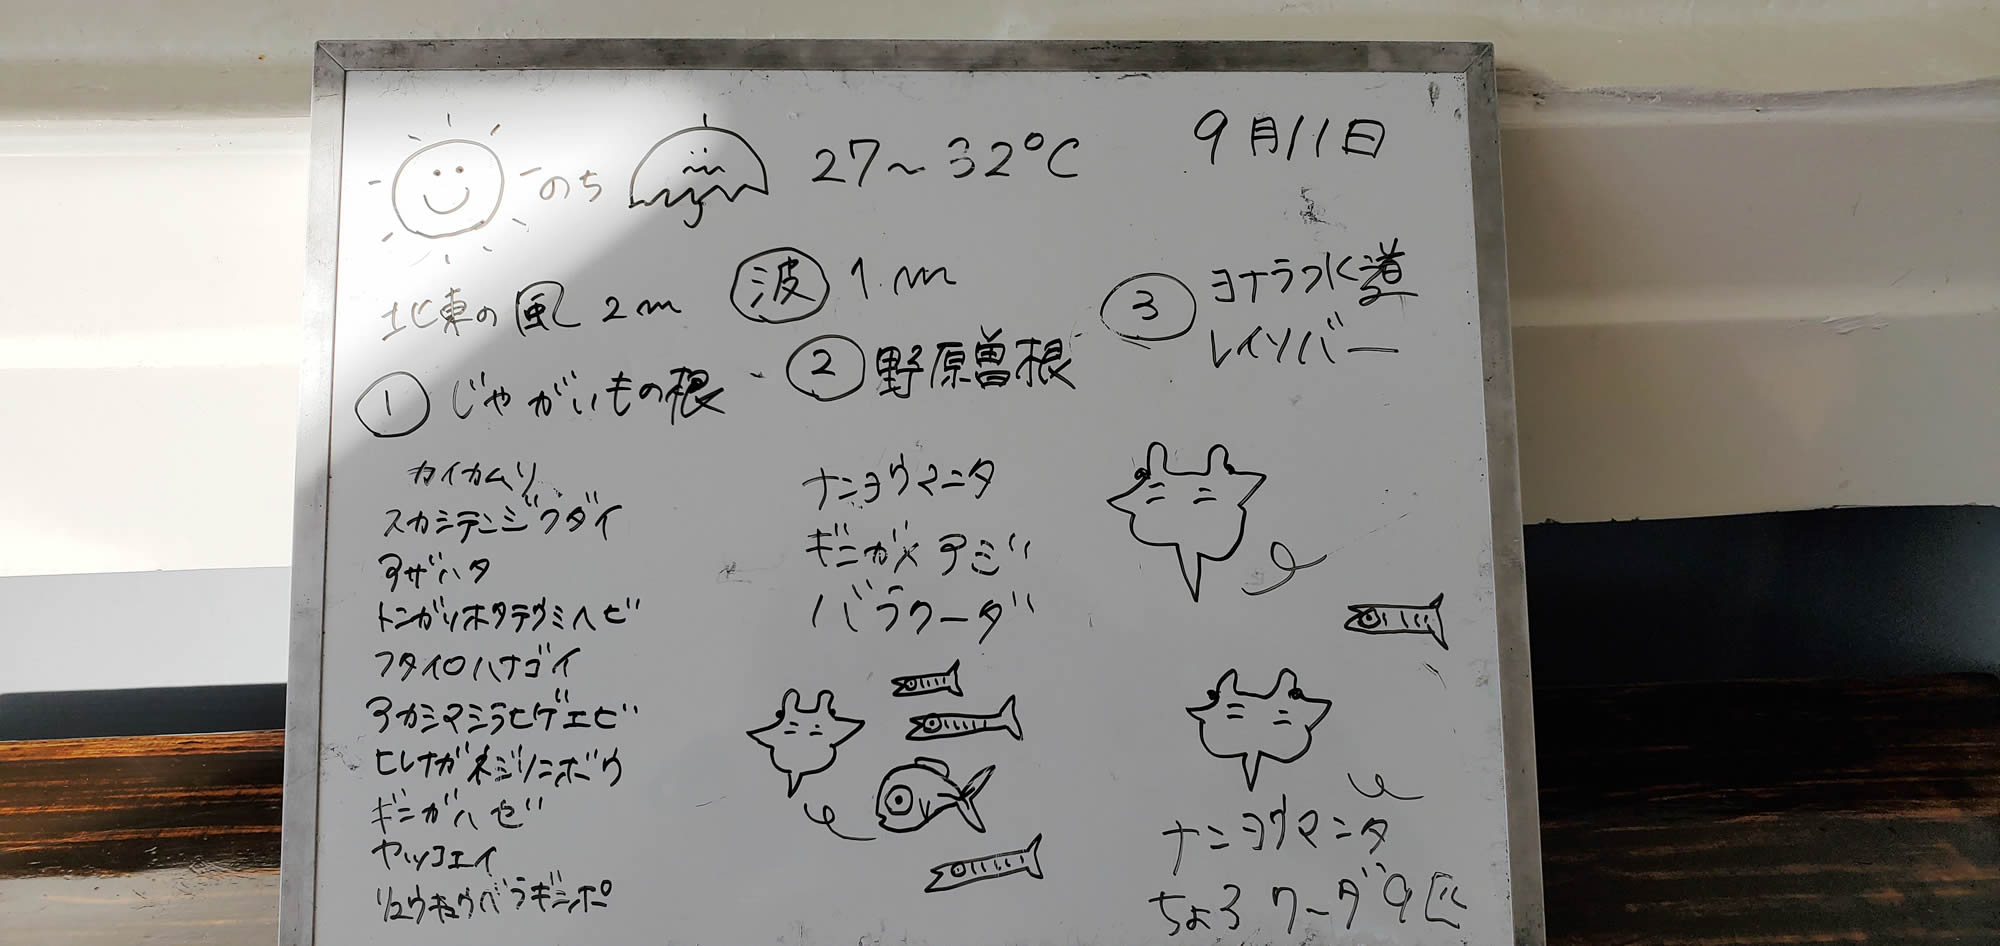 9月11日
のち 27〜32℃
北東の風 2m 波 1m
① じゃがいもの根
カイカムリ
スカシテンジクダイ
アザハタ
トンガリホタテウミヘビ
フタイロハナゴイ
アカシマシラヒゲエビ
ヒレナガネジリンボウ
ギンガハゼ
ヤッコエイ
リュウキュウベラギンポ
② 野原曽根
ナンヨウマンタ
ギンガメアジ
バラクーダ
③ ヨナラ水道
レインバー
ナンヨウマンタ
ちょろワーダ9匹